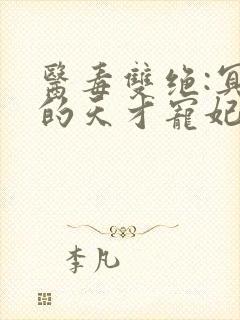 醫毒雙绝:冥
的天才寵妃
李凡